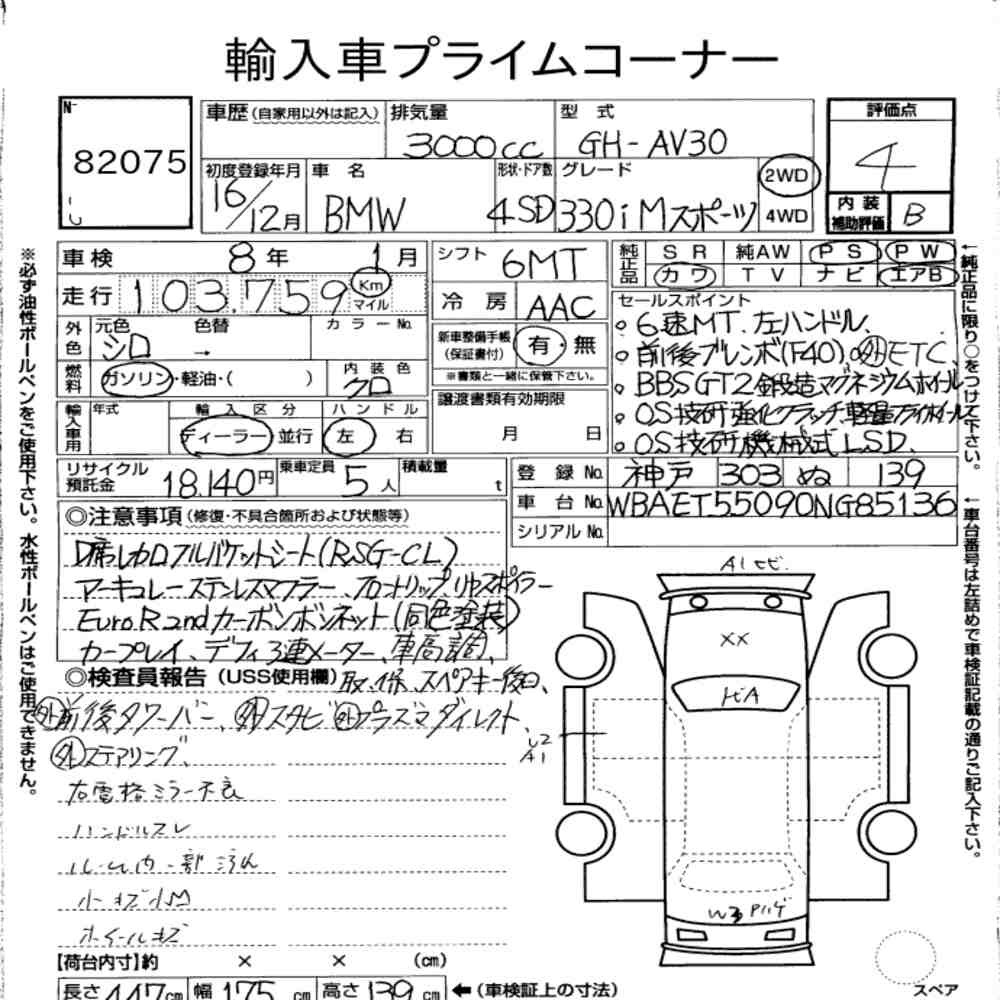 輸入車プライムコーナー
No 82075
車歴(自家用以外は記入) 排気量 3000cc 型式 GH-AV30 評価点 4
初度登録年月 16/12月 車名 BMW 形状・ドア数 4SD グレード 330i Mスポーツ 2WD 4WD 内装補助評価 B
車検 8年 1月 シフト 6MT 純正品 SR 純AW PS PW
カワ TV ナビ エアB
走行 103,759 Km マイル 冷房 AAC
外色 元色 シロ 色替 → カラーNo.
新車整備手帳(保証書付) 有・無
※書類と一緒に保管下さい。
燃料 ガソリン・軽油・( ) 内装色 クロ
輸入車用 年式 輸入区分 ディーラー 並行 ハンドル 左 右
譲渡書類有効期限 月 日
セールスポイント
○6速MT.左ハンドル.
○前後ブレンボ(F40)○外ETC
○BBSGT2鍛造マグネシウムホイール
○OS技研強化クラッチ.軽量フライホイール
○OS技研機械式LSD.
リサイクル預託金 18.140円 乗車定員 5人 積載量 t
登録No. 神戸 303 ぬ 139
車台No. WBAET55090NG85136
シリアルNo.
◎注意事項(修復・不具合箇所および状態等)
D席レカロフルバケットシート(RSG-CL)
マーキュレーステンレスマフラー.フロントリップ.リヤスポイラー
Euro.R 2ndカーボンボンネット(同色塗装)
カープレイ、デフィ3連メーター、車高調、
◎検査員報告(USS使用欄)
取.保.スペアキー後日、
外前後タワーバー、外スタビ 外プラズマダイレクト
外ステアリング
右電格ミラー不良
ハンドルスレ
ルーム内一部汚れ
小キズ小凹
ホイールキズ
【荷台内寸】約 × × (cm)
長さ 447cm 幅 175cm 高さ 139cm ←(車検証上の寸法)
A1 トビ
XX
トビA
U2
A1
W3 Pハゲ
スペア
※必ず油性ボールペンをご使用下さい。水性ボールペンはご使用できません。
←純正品に限り○をつけて下さい。
←車台番号は左詰めで車検証記載の通りご記入下さい。